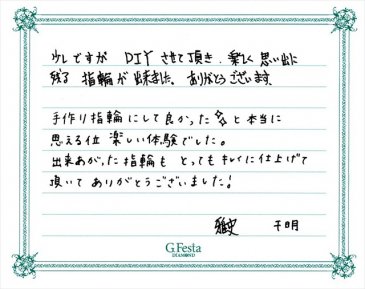 少しですが DIYさせて頂き、楽しく思い出に
残る指輪が出来ました。ありがとうございます。
手作り指輪にして良かった と本当に
思える位 楽しい体験でした。
出来あがった指輪も とってもキレイに仕上げて
頂いて ありがとうございました!
雅史 千明
G.Festa
DIAMOND